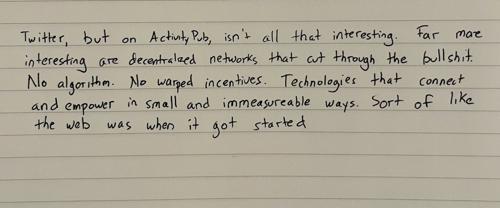 Twitter, but on ActivityPub, isn't all that interesting. Far more
interesting are decentralized networks that cut through the bullshit.
No algorithm. No warped incentives. Technologies that connect
and empower in small and immeasureable ways. Sort of like
the web was when it got started